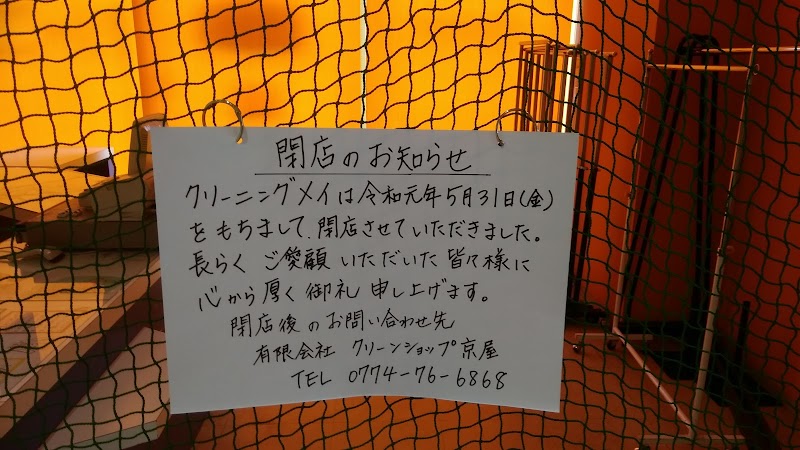 閉店のお知らせ
クリーニングメイは令和元年5月31日(金)
をもちまして、閉店させていただきました。
長らくご愛顧いただいた皆々様に
心から厚く御礼申し上げます。
閉店後のお問い合わせ先
有限会社 クリーンショップ京屋
TEL 0774-76-6868